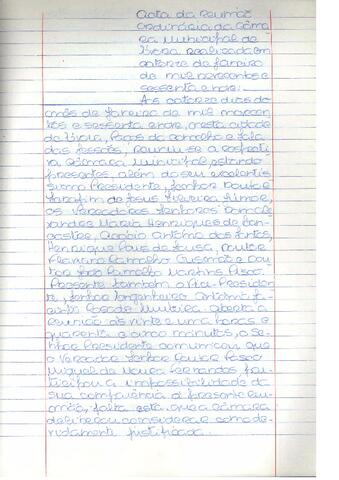 Acta da reunião
Ordinária da Câma
ra Municipal de
Évora realizada em
catorze de Janeiro
de mil novecentos e
sessenta e nove.
Aos catorze dias do
mês de Janeiro de mil novecen
tos e sessenta e nove, nesta cidade
de Évora, Paços do Concelho e sala
das sessões, reuniu-se a respecti
va Câmara Municipal estando
presentes, além do seu excelentís
simo Presidente, Senhor Doutor
Serafim de Jesus Silveira Júnior,
os Vereadores Senhores
Maria Henriques de Lan
castre, António dos Santos,
Henrique de Sousa, Doutor
Carvalho e Dou
tor João Carvalho Martins
Presente também o Vice-Presiden
te, Senhor Engenheiro António
Aberta a
reunião às vinte e uma horas e
quarenta e cinco minutos, o Se
nhor Presidente comunicou que
o Vereador Senhor Doutor
Miguel de Fernandes, par
ticipou a impossibilidade da
sua comparência à presente reu
nião, falta esta que a Câmara
deliberou considerar como de
vidamente justificada.